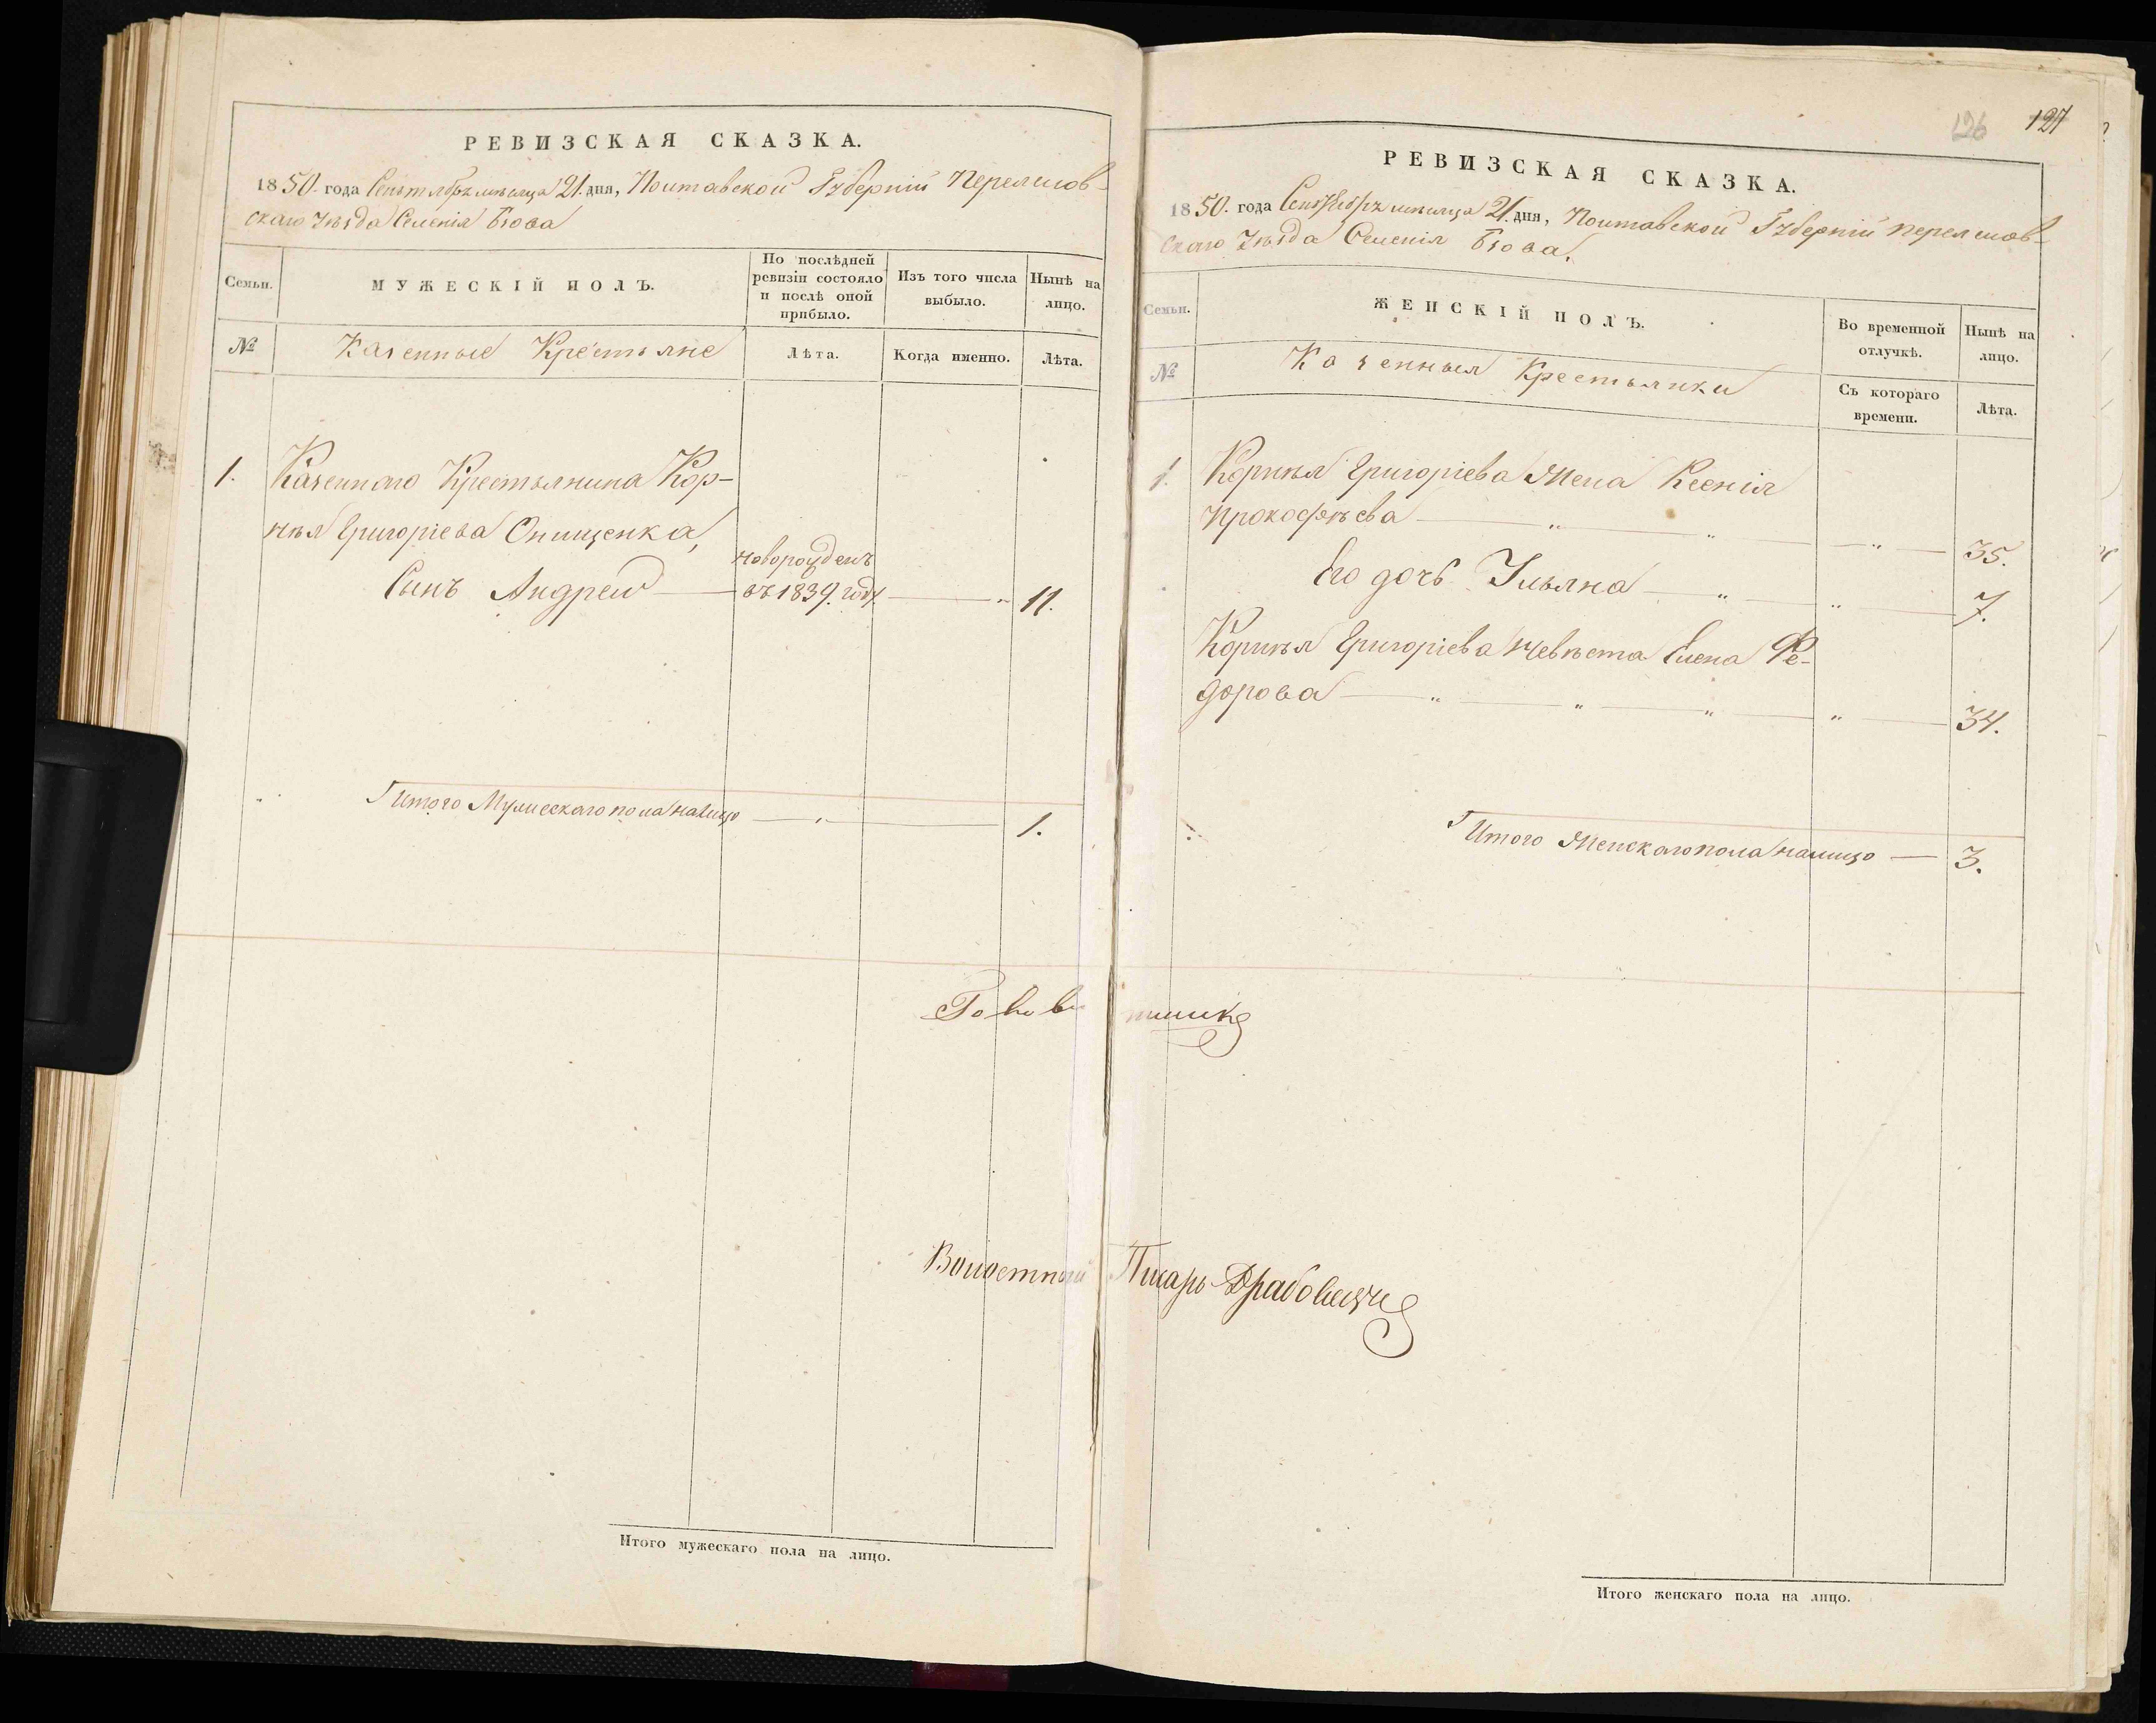 РЕВИЗСКАЯ СКАЗКА.
1850. года Сентября мѣсяца 21. дня, Полтавской Губерніи Переяслов-
скаго Уѣзда Селенія
Семьи.
МУЖЕСКІЙ ПОЛЪ.
По послѣдней ревизіи состояло и послѣ оной прибыло.
Изъ того числа выбыло.
Нынѣ на лицо.
№
Казенные Крестьяне
Лѣта.
Когда именно.
Лѣта.
1. Казенного Крестьянина Кор-
нѣя Григоріева Онищенка,
новорожденъ
Сынъ Андрей въ 1839. году 11.
Итого Мужескаго пола налицо 1.
Итого мужескаго пола на лицо.
126 127
РЕВИЗСКАЯ СКАЗКА.
1850. года Сентября мѣсяца 21. дня, Полтавской Губерніи Переяслов-
скаго Уѣзда Селенія
Семьи.
ЖЕНСКІЙ ПОЛЪ.
Во временной отлучкѣ.
Нынѣ на лицо.
№
Казенныя Крестьянки
Съ котораго времени.
Лѣта.
1. Корнѣя Григоріева Жена Ксенія
Прокофѣева " " " 35.
Его дочь Ульяна " " 7.
Корнѣя Григоріева Невѣста Елена Фе-
дорова " " " " 34.
Итого Женскаго пола налицо 3.
Волостный Писарь
Итого женскаго пола на лицо.